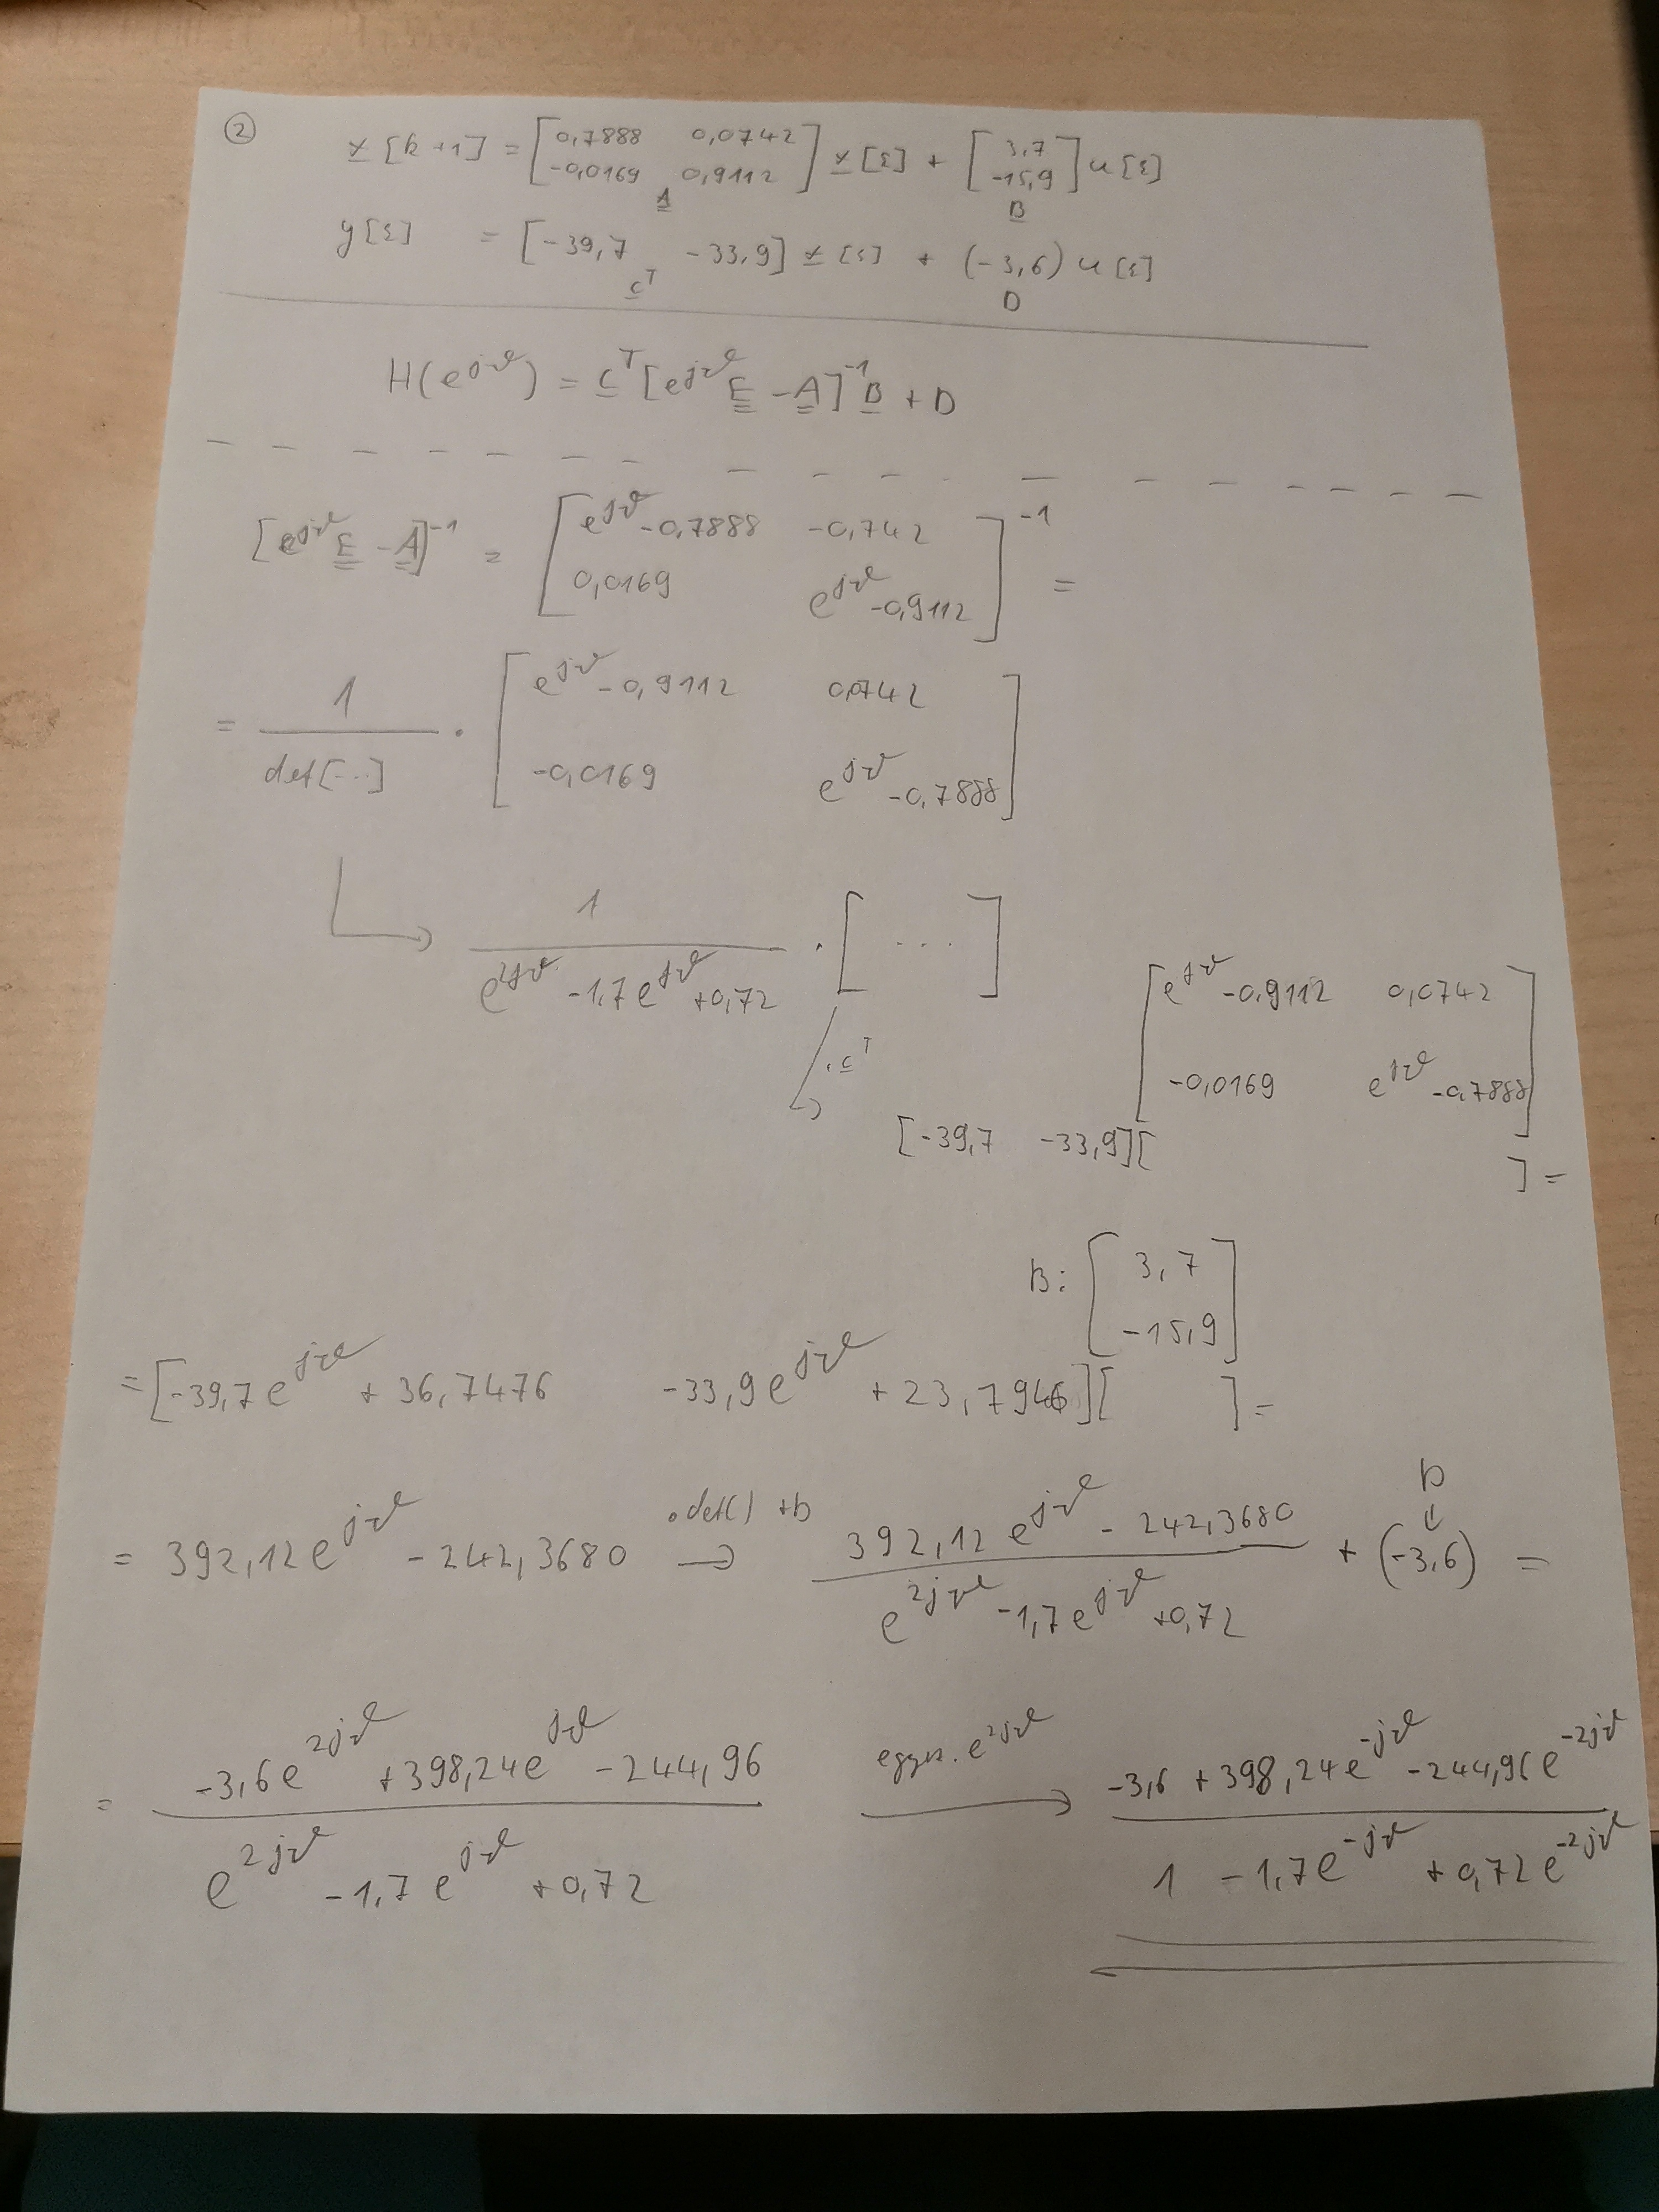 ②
x[k+1] = [0,7888 0,0742; -0,0169 0,9112] x[k] + [3,7; -15,9] u[k]
A B
y[k] = [-39,7 -33,9] x[k] + (-3,6) u[k]
c^T D
H(e^{jϑ}) = c^T [e^{jϑ} E - A]^{-1} B + D
[e^{jϑ} E - A]^{-1} = [e^{jϑ}-0,7888 -0,742; 0,0169 e^{jϑ}-0,9112]^{-1} =
= 1/det[...] · [e^{jϑ}-0,9112 0,0742; -0,0169 e^{jϑ}-0,7888]
↳ 1/(e^{2jϑ} -1,7e^{jϑ} +0,72) · [ ... ]
[e^{jϑ}-0,9112 0,0742; -0,0169 e^{jϑ}-0,7888]
· c^T
[-39,7 -33,9][ ] =
B: [3,7; -15,9]
= [-39,7e^{jϑ} + 36,7476 -33,9e^{jϑ} + 23,7946][ ] =
= 392,12e^{jϑ} - 242,3680 ·det() +D → (392,12e^{jϑ} - 242,3680)/(e^{2jϑ} -1,7e^{jϑ} +0,72) + (-3,6) =
D ↓
= (-3,6e^{2jϑ} +398,24e^{jϑ} -244,96)/(e^{2jϑ} -1,7e^{jϑ} +0,72) egysz. e^{2jϑ} → (-3,6 +398,24e^{-jϑ} -244,96e^{-2jϑ})/(1 -1,7e^{-jϑ} +0,72e^{-2jϑ})